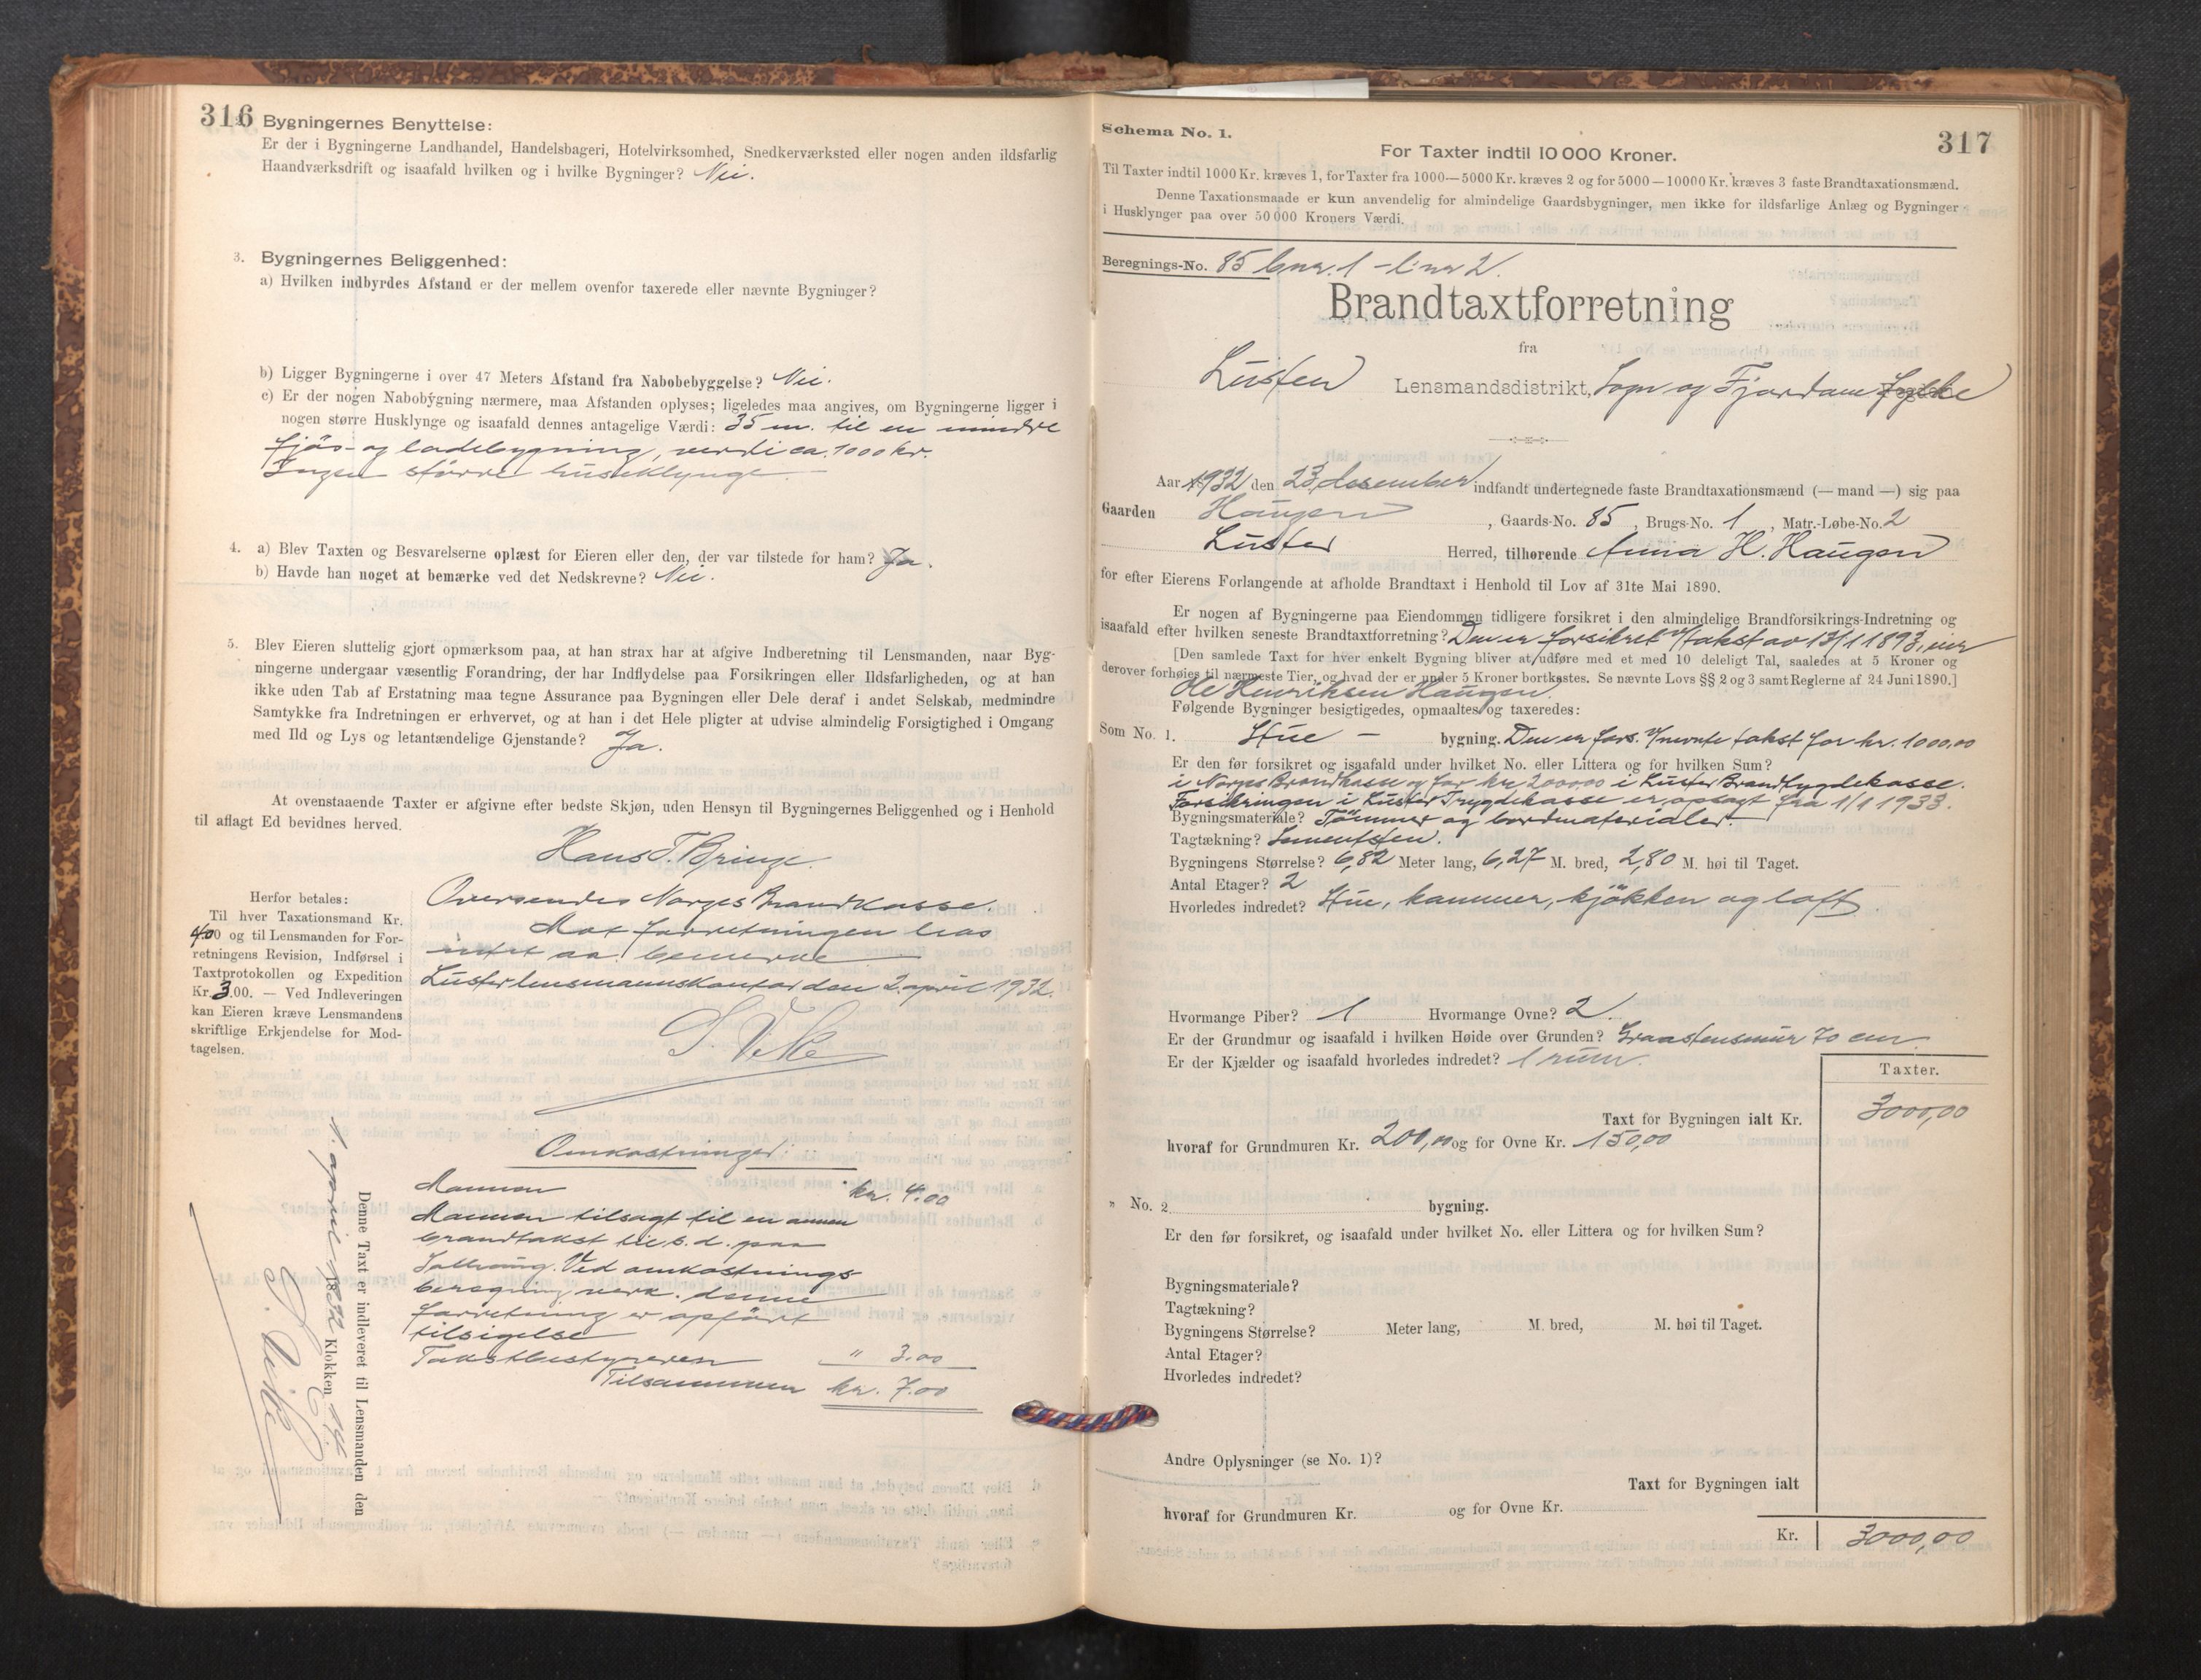 316
Bygningernes Benyttelse:
Er der i Bygningerne Landhandel, Handelsbageri, Hotelvirksomhed, Snedkerværksted eller nogen anden ildsfarlig
Haandværksdrift og isaafald hvilken og i hvilke Bygninger? Nei.
3. Bygningernes Beliggenhed:
a) Hvilken indbyrdes Afstand er der mellem ovenfor taxerede eller nævnte Bygninger?
b) Ligger Bygningerne i over 47 Meters Afstand fra Nabobebyggelse? Nei.
c) Er der nogen Nabobygning nærmere, maa Afstanden oplyses; ligeledes maa angives, om Bygningerne ligger i
nogen større Husklynge og isaafald dennes antagelige Værdi: 35 m. til en mindre
fjös- og ladebygning, verdi ca. 1000 kr.
Ingen större husklynge
4. a) Blev Taxten og Besvarelserne oplæst for Eieren eller den, der var tilstede for ham? Ja.
b) Havde han noget at bemærke ved det Nedskrevne? Nei.
5. Blev Eieren sluttelig gjort opmærksom paa, at han strax har at afgive Indberetning til Lensmanden, naar Byg-
ningerne undergaar væsentlig Forandring, der har Indflydelse paa Forsikringen eller Ildsfarligheden, og at han
ikke uden Tab af Erstatning maa tegne Assurance paa Bygningen eller Dele deraf i andet Selskab, medmindre
Samtykke fra Indretningen er erhvervet, og at han i det Hele pligter at udvise almindelig Forsigtighed i Omgang
med Ild og Lys og letantændelige Gjenstande? Ja.
At ovenstaaende Taxter er afgivne efter bedste Skjøn, uden Hensyn til Bygningernes Beliggenhed og i Henhold
til aflagt Ed bevidnes herved.
Hans T. Bringe.
Herfor betales:
Til hver Taxationsmand Kr.
4.00 og til Lensmanden for For-
retningens Revision, Indførsel i
Taxtprotokollen og Expedition
Kr. 3.00. — Ved Indleveringen
kan Eieren kræve Lensmandens
skriftlige Erkjendelse for Mod-
tagelsen.
Oversendes Norges Brandkasse.
Mot forretningen has
intet aa bemerke
Luster lensmannskontor den 2. april 1932.
S. Vike
Omkostninger:
Mannen kr. 4.00
Mannen tilsagt til en annen
brandtakst til s. d. paa
Ved omkostnings
beregning vedk. denne
forretning er opfört
tilsigelse
Takstbestyreren " 3.00
Tilsammen kr. 7.00
Denne Taxt er indleveret til Lensmanden den
1. april 1932 Klokken 14
S. Vike
317
Schema No. 1.
For Taxter indtil 10 000 Kroner.
Til Taxter indtil 1000 Kr. kræves 1, for Taxter fra 1000—5000 Kr. kræves 2 og for 5000—10000 Kr. kræves 3 faste Brandtaxationsmænd.
Denne Taxationsmaade er kun anvendelig for almindelige Gaardsbygninger, men ikke for ildsfarlige Anlæg og Bygninger
i Husklynger paa over 50 000 Kroners Værdi.
Beregnings-No. 85 bnr. 1 - l. nr 2.
Brandtaxtforretning
fra
Luster Lensmandsdistrikt, Sogn og Fjordane fylke
Aar 1932 den 23 desember indfandt undertegnede faste Brandtaxationsmænd (— mand —) sig paa
Gaarden Haugen, Gaards-No. 85, Brugs-No. 1, Matr.-Løbe-No. 2
Luster Herred, tilhørende Anna H. Haugen
for efter Eierens Forlangende at afholde Brandtaxt i Henhold til Lov af 31te Mai 1890.
Er nogen af Bygningerne paa Eiendommen tidligere forsikret i den almindelige Brandforsikrings-Indretning og
isaafald efter hvilken seneste Brandtaxtforretning? Den er forsikret v/ takst av 17/1 1893, eier
[Den samlede Taxt for hver enkelt Bygning bliver at udføre med et med 10 deleligt Tal, saaledes at 5 Kroner og
derover forhøies til nærmeste Tier, og hvad der er under 5 Kroner bortkastes. Se nævnte Lovs §§ 2 og 3 samt Reglerne af 24 Juni 1890.]
Ole Henriksen Haugen.
Følgende Bygninger besigtigedes, opmaaltes og taxeredes:
Som No. 1. Stue - bygning. Den er fors. v/ nevnte takst for kr. 1000,00
Er den før forsikret og isaafald under hvilket No. eller Littera og for hvilken Sum?
i Norges Brandkasse og for kr 2000,00 i Luster Brandtrygdekasse.
Forsikringen i Luster Trygdekasse er opsagt fra 1/1 1933.
Bygningsmateriale? Tömmer og bordmaterialer.
Tagtækning? Sementsten.
Bygningens Størrelse? 6,82 Meter lang, 6,27 M. bred, 2,80 M. høi til Taget.
Antal Etager? 2
Hvorledes indredet? Stue, kammer, kjökken og loft
Hvormange Piber? 1 Hvormange Ovne? 2.
Er der Grundmur og isaafald i hvilken Høide over Grunden? Graastensmur 70 cm
Er der Kjælder og isaafald hvorledes indredet? 1 rum.
Taxter.
Taxt for Bygningen ialt Kr. 3000,00
hvoraf for Grundmuren Kr. 200,00 og for Ovne Kr. 150,00
" No. 2 bygning.
Er den før forsikret, og isaafald under hvilket No. eller Littera og for hvilken Sum?
Bygningsmateriale?
Tagtækning?
Bygningens Størrelse? Meter lang, M. bred, M. høi til Taget.
Antal Etager?
Hvorledes indredet?
Andre Oplysninger (se No. 1)?
Taxt for Bygningen ialt
hvoraf for Grundmuren Kr. og for Ovne Kr.
Kr. 3000,00